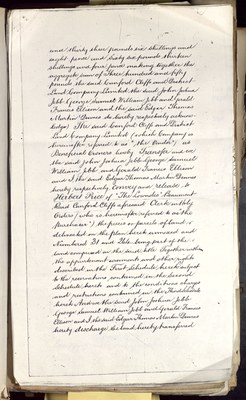 and thirty three pounds six shillings and
eight pence and sixty six pounds thirteen
shillings and four pence making together the
aggregate sum of Three hundred and fifty
pounds the said Canford Cliffs and
Land Company Limited the said John Joshua
Jebb George Samuel William Jebb and Gerald
Francis Ellison and the said Edgar Thomas
do hereby respectively acknow-
ledge) The said Canford Cliffs and
Land Company Limited (which Company is
hereinafter referred to as "the Vendors") as
Beneficial Owners hereby and we
the said John Joshua Jebb George Samuel
William Jebb and Gerald Francis Ellison
and I the said Edgar Thomas
hereby respectively Convey and release to
Herbert Frees of "The Lowndes" Beaumont
Road Canford Cliffs aforesaid Clerk in Holy
Orders (who is hereinafter referred to as the
Purchaser") the piece or parcel of land
delineated on the plan hereto annexed and
Numbered 31 and being part of the
land comprised in the said Together with
the appurtenant easements and other rights
described in the First Schedule hereto subject
to the reservations contained in the Second
Schedule hereto and to the conditions
and restrictions contained in the Third Schedule
hereto And we the said John Joshua Jebb
George Samuel William Jebb and Gerald Francis
Ellison and I the said Edgar Thomas
hereby discharge the land hereby transferred